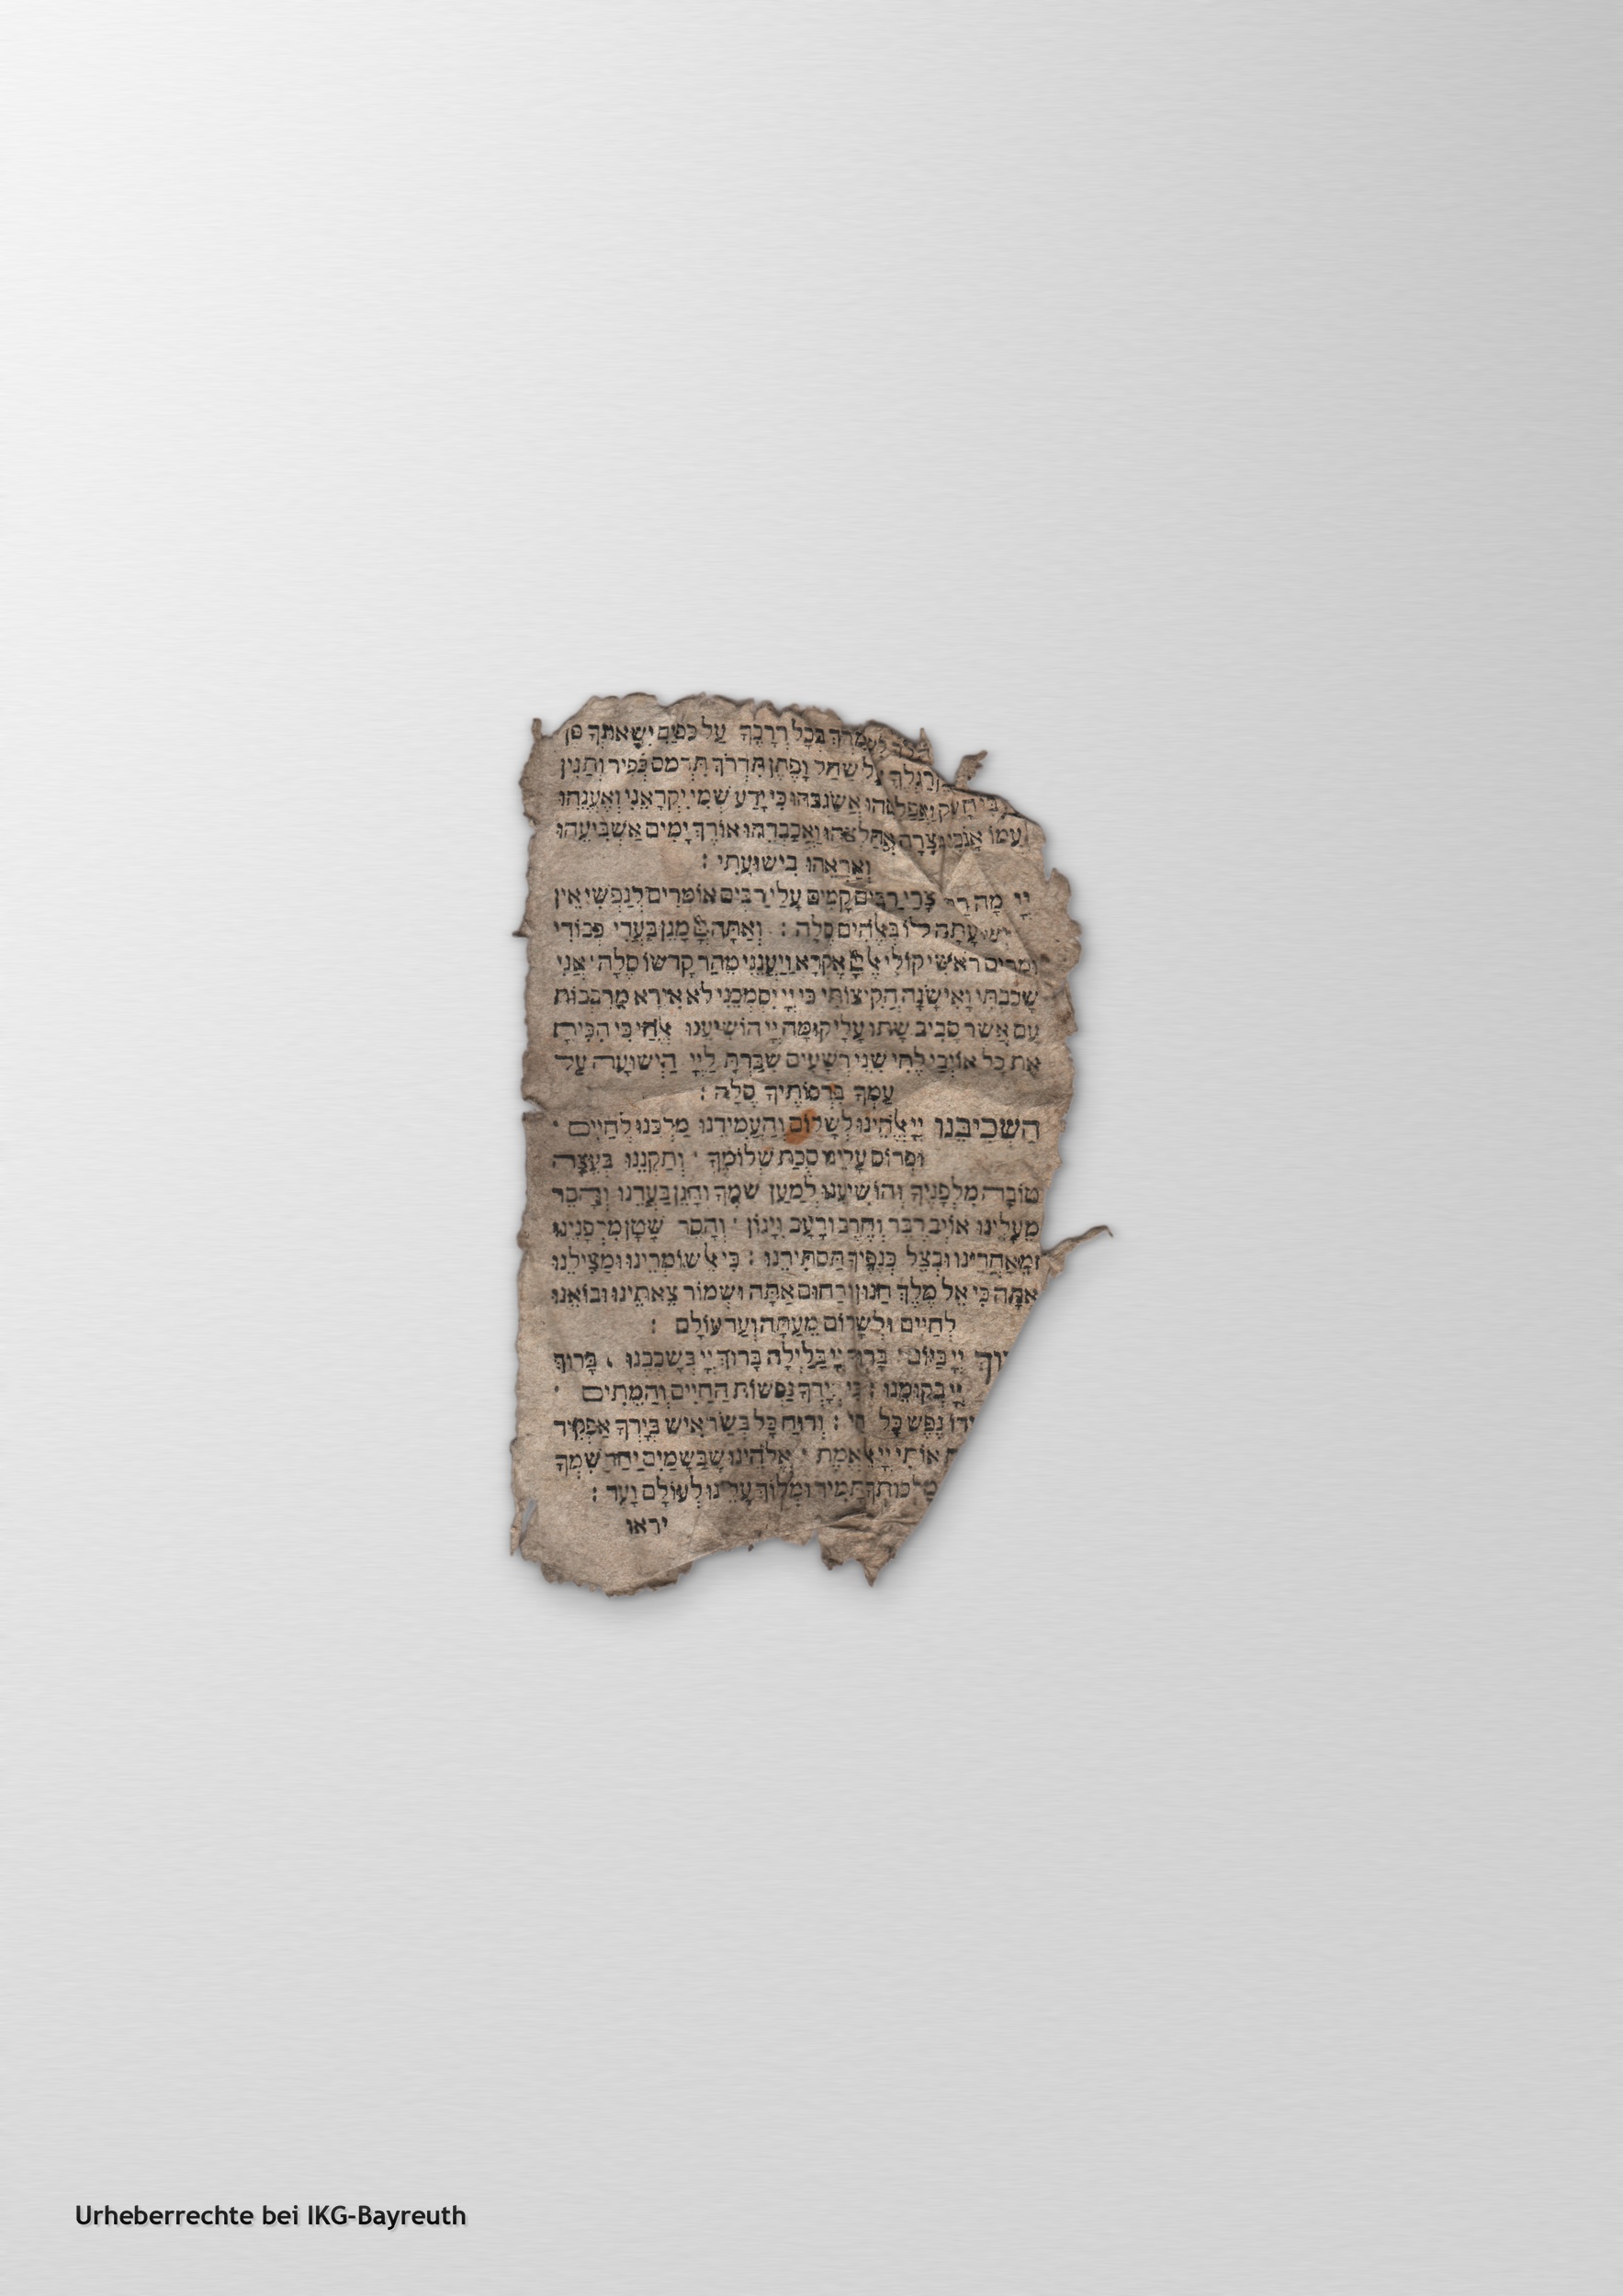 לִשְׁמָרְךָ בְּכָל דְּרָכֶיךָ עַל כַּפַּיִם יִשָּׂאוּנְךָ פֶּן
רַגְלֶךָ עַל שַׁחַל וָפֶתֶן תִּדְרֹךְ תִּרְמֹס כְּפִיר וְתַנִּין
בִי חָשַׁק וַאֲפַלְּטֵהוּ אֲשַׂגְּבֵהוּ כִּי יָדַע שְׁמִי יִקְרָאֵנִי וְאֶעֱנֵהוּ
עִמּוֹ אָנֹכִי בְצָרָה אֲחַלְּצֵהוּ וַאֲכַבְּדֵהוּ אוֹרֶךְ יָמִים אַשְׂבִּיעֵהוּ
וְאַרְאֵהוּ בִישׁוּעָתִי :
יְיָ מָה צָרַי רַבִּים קָמִים עָלַי רַבִּים אוֹמְרִים לְנַפְשִׁי אֵין
יְשׁוּעָתָה לּוֹ בֵּאלֹהִים סֶלָה : וְאַתָּה מָגֵן בַּעֲדִי כְּבוֹדִי
וּמֵרִים רֹאשִׁי קוֹלִי אֶל אֶקְרָא וַיַּעֲנֵנִי מֵהַר קָדְשׁוֹ סֶלָה אֲנִי
שָׁכַבְתִּי וָאִישָׁנָה הֱקִיצוֹתִי כִּי יְיָ יִסְמְכֵנִי לֹא אִירָא מֵרִבְבוֹת
עַם אֲשֶׁר סָבִיב שָׁתוּ עָלָי קוּמָה יְיָ הוֹשִׁיעֵנוּ אֱלֹהַי כִּי הִכִּיתָ
אֶת כָּל אוֹיְבַי לֶחִי שִׁנֵּי רְשָׁעִים שִׁבַּרְתָּ לַיְיָ הַיְשׁוּעָה עַל
עַמְּךָ בִּרְכוֹתֶיךָ סֶּלָה :
הַשְׁכִּיבֵנוּ יְיָ אֱלֹהֵינוּ לְשָׁלוֹם וְהַעֲמִידֵנוּ מַלְכֵּנוּ לְחַיִּים ·
וּפְרוֹס עָלֵינוּ סֻכַּת שְׁלוֹמֶךָ · וְתַקְּנֵנוּ בְּעֵצָה
טוֹבָה מִלְּפָנֶיךָ וְהוֹשִׁיעֵנוּ לְמַעַן שְׁמֶךָ וְהָגֵן בַּעֲדֵנוּ וְהָסֵר
מֵעָלֵינוּ אוֹיֵב דֶּבֶר וְחֶרֶב וְרָעָב וְיָגוֹן · וְהָסֵר שָׂטָן מִלְּפָנֵינוּ
וּמֵאַחֲרֵינוּ וּבְצֵל כְּנָפֶיךָ תַּסְתִּירֵנוּ : כִּי אֵל שׁוֹמְרֵינוּ וּמַצִּילֵנוּ
אַתָּה כִּי אֵל מֶלֶךְ חַנּוּן וְרַחוּם אַתָּה וּשְׁמוֹר צֵאתֵינוּ וּבוֹאֵנוּ
לְחַיִּים וּלְשָׁלוֹם מֵעַתָּה וְעַד עוֹלָם :
יְיָ בַּיּוֹם · בָּרוּךְ יְיָ בַּלַּיְלָה בָּרוּךְ יְיָ בְּשָׁכְבֵנוּ · בָּרוּךְ
יְיָ בְּקוּמֵנוּ : כִּי בְיָדְךָ נַפְשׁוֹת הַחַיִּים וְהַמֵּתִים ·
נֶפֶשׁ כָּל חי : וְרוּחַ כָּל בְּשַׂר אִישׁ בְּיָדְךָ אַפְקִיד
אוֹתִי יְיָ אֵל אֱמֶת · אֱלֹהֵינוּ שֶׁבַּשָּׁמַיִם יַחֵד שִׁמְךָ
מַלְכוּתְךָ תָּמִיד וּמְלוֹךְ עָלֵינוּ לְעוֹלָם וָעֶד :
יראו
Urheberrechte bei IKG-Bayreuth